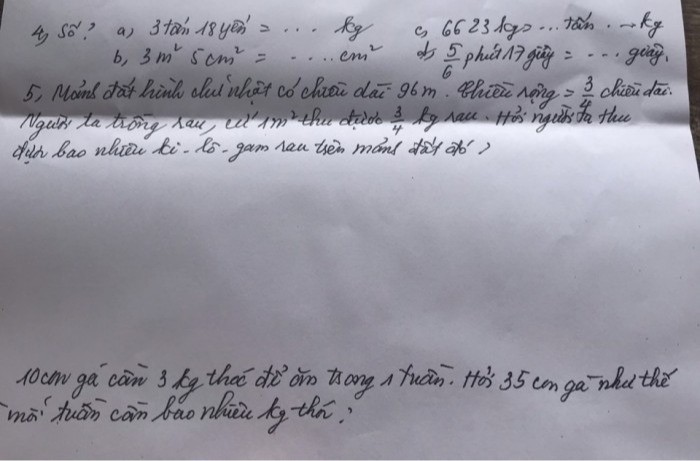 4, Số? a) 3 tấn 18 yến = ... kg c, 6623 kg = ... tấn ... kg
b, 3 m² 5 cm² = ..... cm² d) 5/6 phút 17 giây = ... giây.
5, Mảnh đất hình chữ nhật có chiều dài 96 m. Chiều rộng = 3/4 chiều dài.
Người ta trồng rau, cứ 1m² thu được 3/4 kg rau. Hỏi người ta thu
được bao nhiêu ki-lô-gam rau trên mảnh đất đó?
10 con gà cần 3 kg thóc để ăn trong 1 tuần. Hỏi 35 con gà như thế
mỗi tuần cần bao nhiêu kg thóc?